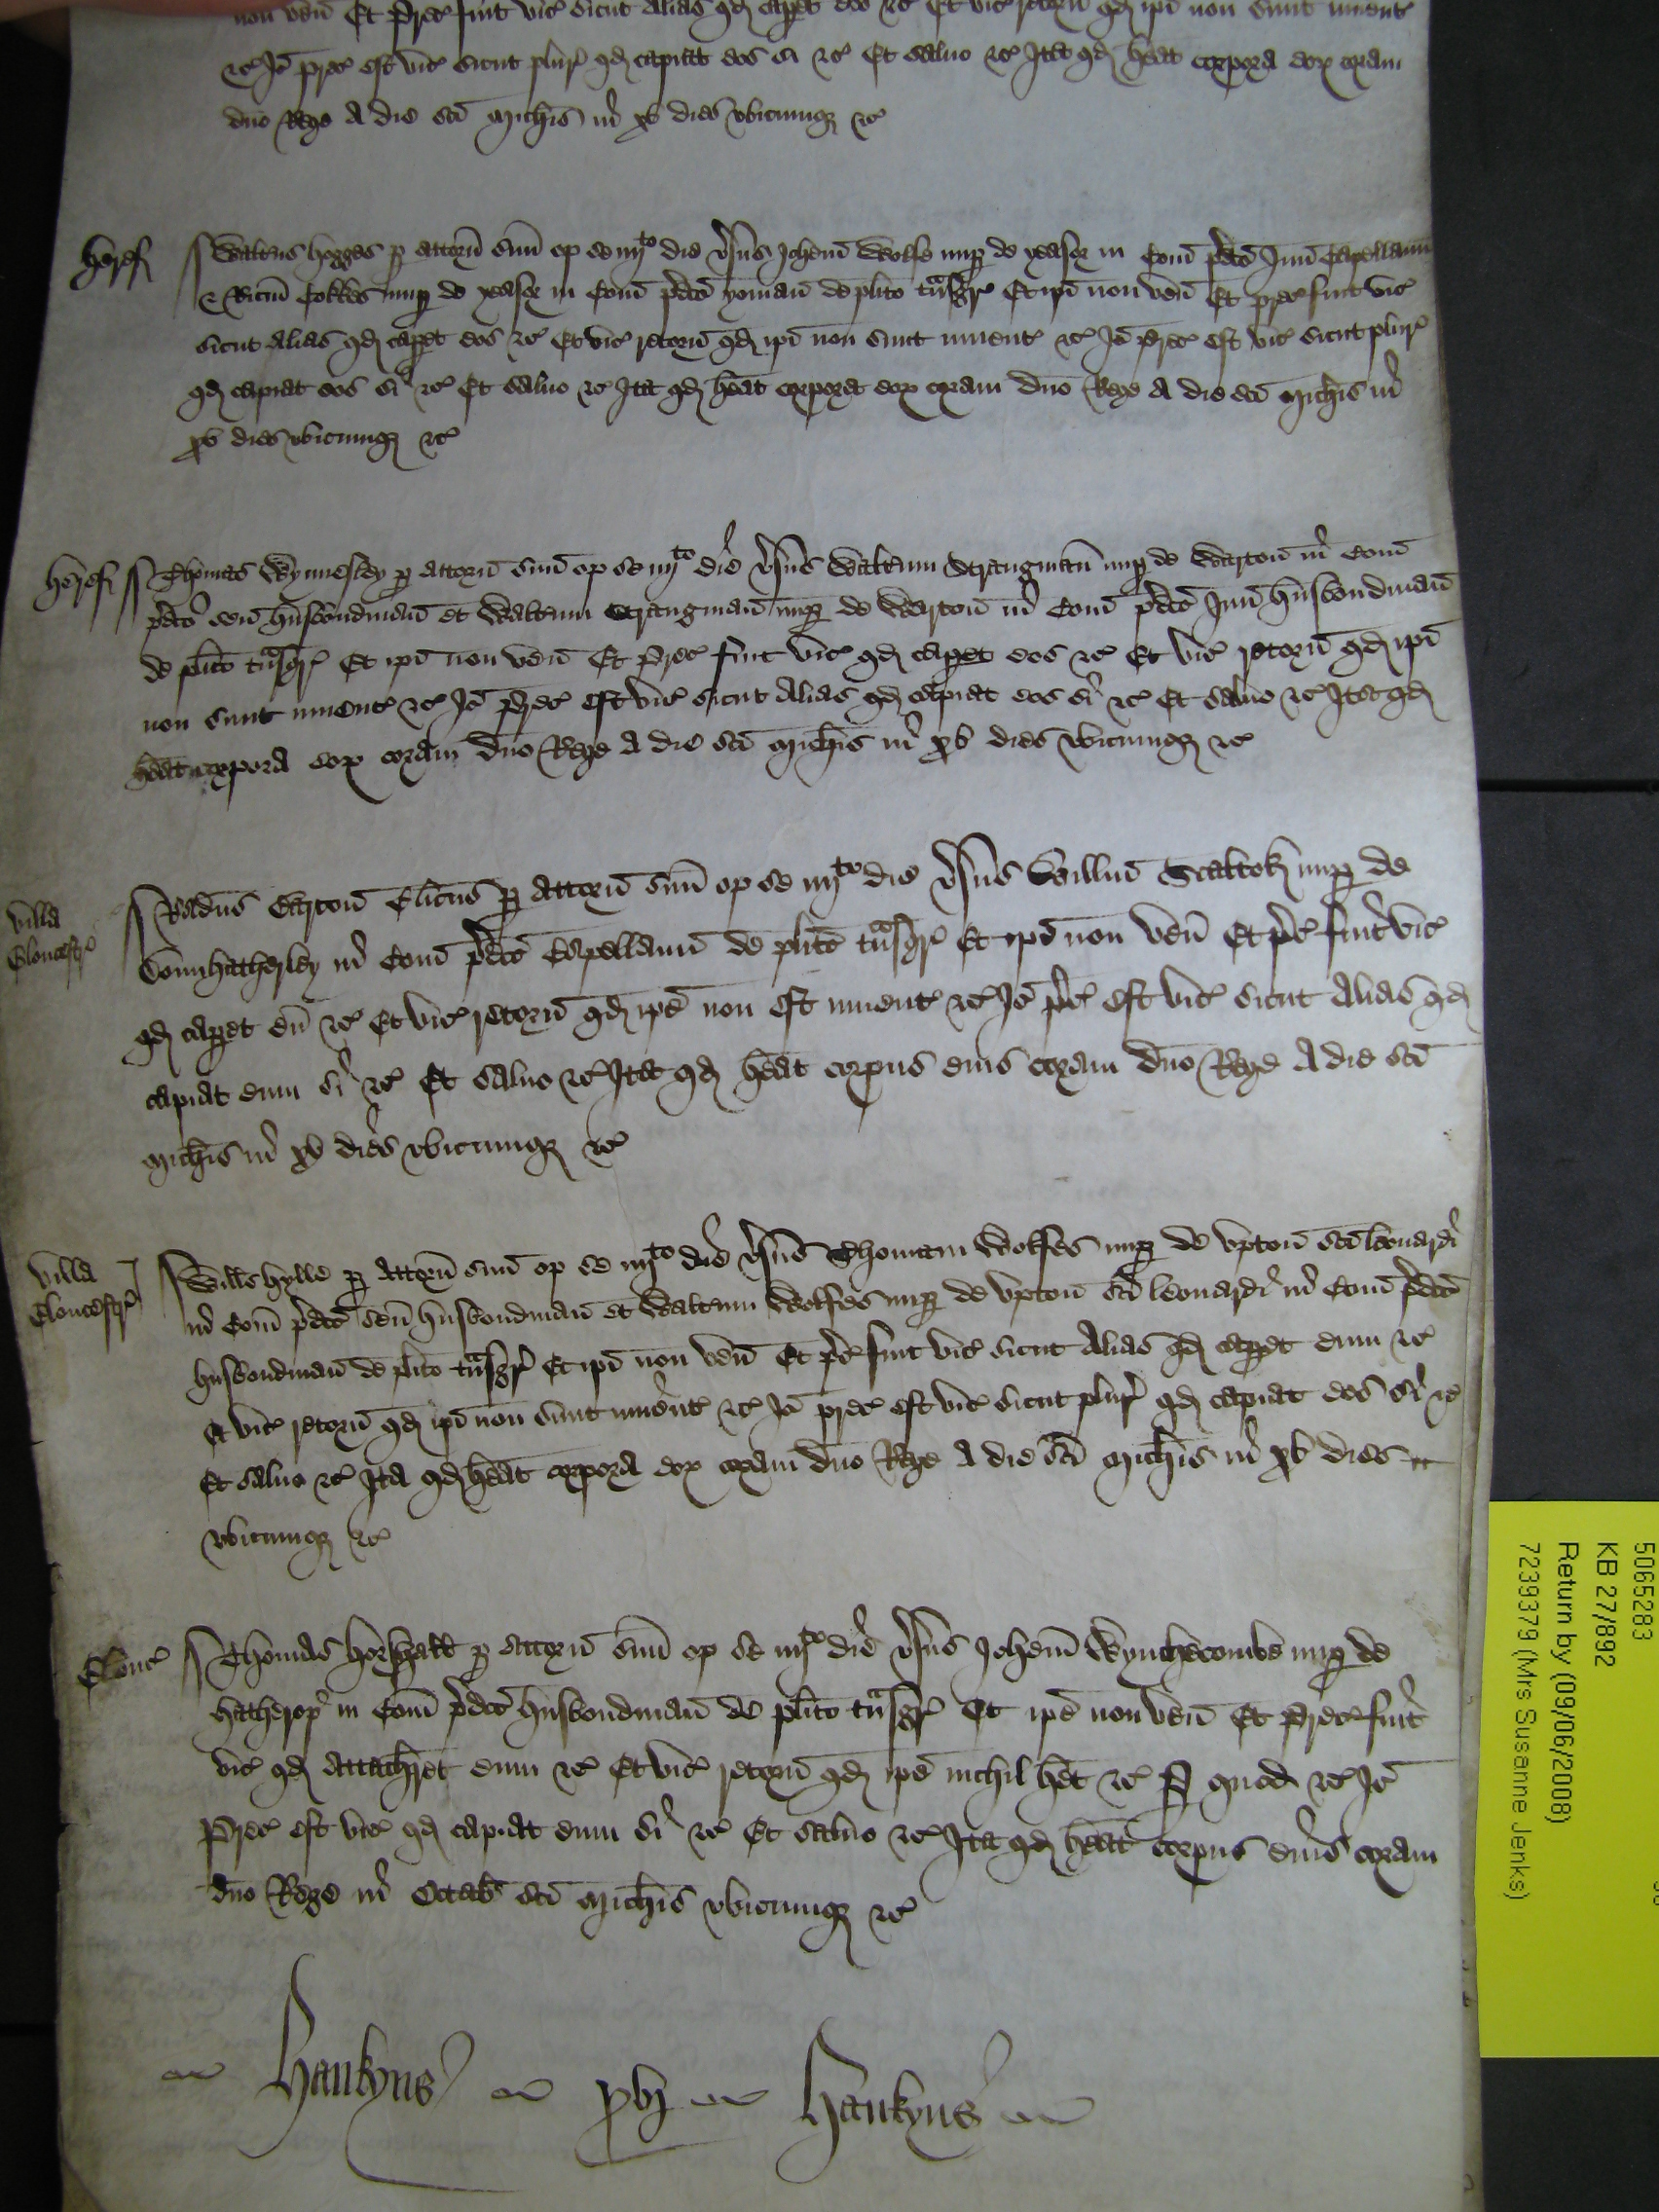 non ven̄ Et prec̄ fuit vic̄ sicut alias qd̄ cap̄et eos ⁊c̄ Et vic̄ retorn̄ qd̄ ip̄i non sunt invent̄
⁊c̄ Iō prec̄ est vic̄ sicut plur̄ qd̄ capiat eos si ⁊c̄ Et salvo ⁊c̄ Ita qd̄ hēat corpora eoꝝ coram
dn̄o Rege A die sc̄i Mich̄is in xv dies ubicumqꝫ ⁊c̄
Heref̄
Walterus Hogges ꝑ attorn̄ suū op̄ se iiijto die v̄sus Joh̄em Wolfe nuꝑ de in Com̄ p̄dc̄o Jun̄ Capellanū
& Ric̄m Cokkes nuꝑ de in Com̄ p̄dc̄o yoman̄ de pl̄ito tn̄sgr̄ Et ip̄i non ven̄ Et prec̄ fuit vic̄
sicut alias qd̄ cap̄et eos ⁊c̄ Et vic̄ retorn̄ qd̄ ip̄i non sunt invent̄ ⁊c̄ Iō prec̄ est vic̄ sicut plur̄
qd̄ capiat eos si ⁊c̄ Et salvo ⁊c̄ Ita qd̄ hēat corpora eoꝝ coram dn̄o Rege A die sc̄i Mich̄is in
xv dies ubicumqꝫ ⁊c̄
Heref̄
Thomas Wynnesley ꝑ attorn̄ suū op̄ se iiijto die v̄sus Walt̄um Strangman̄ nuꝑ de Warton̄ in Com̄
p̄dc̄o sen̄ husbondman̄ et Walt̄um Strangman̄ nuꝑ de Warton̄ in Com̄ p̄dc̄o Jun̄ husbondman̄
de pl̄ito tn̄sgr̄ Et ip̄i non ven̄ Et prec̄ fuit vic̄ qd̄ cap̄et eos ⁊c̄ Et vic̄ retorn̄ qd̄ ip̄i
non sunt invent̄ ⁊c̄ Iō prec̄ est vic̄ sicut alias qd̄ capiat eos si ⁊c̄ Et salvo ⁊c̄ Ita qd̄
hēat corpora eoꝝ coram dn̄o Rege A die sc̄i Mich̄is in xv dies ubicumqꝫ ⁊c̄
Villa
Gloucestr̄
Ric̄dus Clic̄us ꝑ attorn̄ suū op̄ se iiijto die v̄sus Will̄m nuꝑ de
Dounhatherley in Com̄ p̄dc̄o Capellanū de pl̄ito tn̄sgr̄ Et ip̄e non ven̄ Et p̄c̄ fuit vic̄
qd̄ cap̄et eū ⁊c̄ Et vic̄ retorn̄ qd̄ ip̄e non est invent̄ ⁊c̄ Iō p̄c̄ est vic̄ sicut alias qd̄
capiat eum si ⁊c̄ Et salvo ⁊c̄ Ita qd̄ hēat corpus eius coram dn̄o Rege A die sc̄i
Mich̄is in xv dies ubicumqꝫ ⁊c̄
Villa
Gloucestr̄
Will̄s Hylle ꝑ attorn̄ suū op̄ se iiijto die v̄sus Thomam Wolfes nuꝑ de Upton̄ sc̄i Leonardi
in Com̄ p̄dc̄o sen̄ husbondman̄ et Walt̄um Wolfes nuꝑ de Upton̄ sc̄i Leonardi in Com̄ p̄dc̄o
husbondman̄ de pl̄ito tn̄sgr̄ Et ip̄i non ven̄ Et p̄c̄ fuit vic̄ sicut alias qd̄ cap̄et eum ⁊c̄
Et vic̄ retorn̄ qd̄ ip̄i non sunt invent̄ ⁊c̄ Iō prec̄ est vic̄ sicut plur̄ qd̄ capiat eos si ⁊c̄
Et salvo ⁊c̄ Ita qd̄ hēat corpora eoꝝ coram dn̄o Rege A die sc̄i Mich̄is in xv dies
ubicumqꝫ ⁊c̄
Glouc̄
Thomas ꝑ attorn̄ suū op̄ se iiijto die v̄sus Joh̄em Wynchecombe nuꝑ de
Hatherop̄ in Com̄ p̄dc̄o husbondman̄ de pl̄ito tn̄sgr̄ Et ip̄e non ven̄ Et prec̄ fuit
vic̄ qd̄ attach̄ret eum ⁊c̄ Et vic̄ retorn̄ qd̄ ip̄e nichil h̄et ⁊c̄ ꝑ quod ⁊c̄ Iō
prec̄ est vic̄ qd̄ capiat eum si ⁊c̄ Et salvo ⁊c̄ Ita qd̄ hēat corpus eius coram
dn̄o Rege in Octab̄ sc̄i Mich̄is ubicumqꝫ ⁊c̄
Hankyns xvj Hankyns
5065283
KB 27/892
Return by (09/06/2008)
7239379 (Mrs Susanne Jenks)